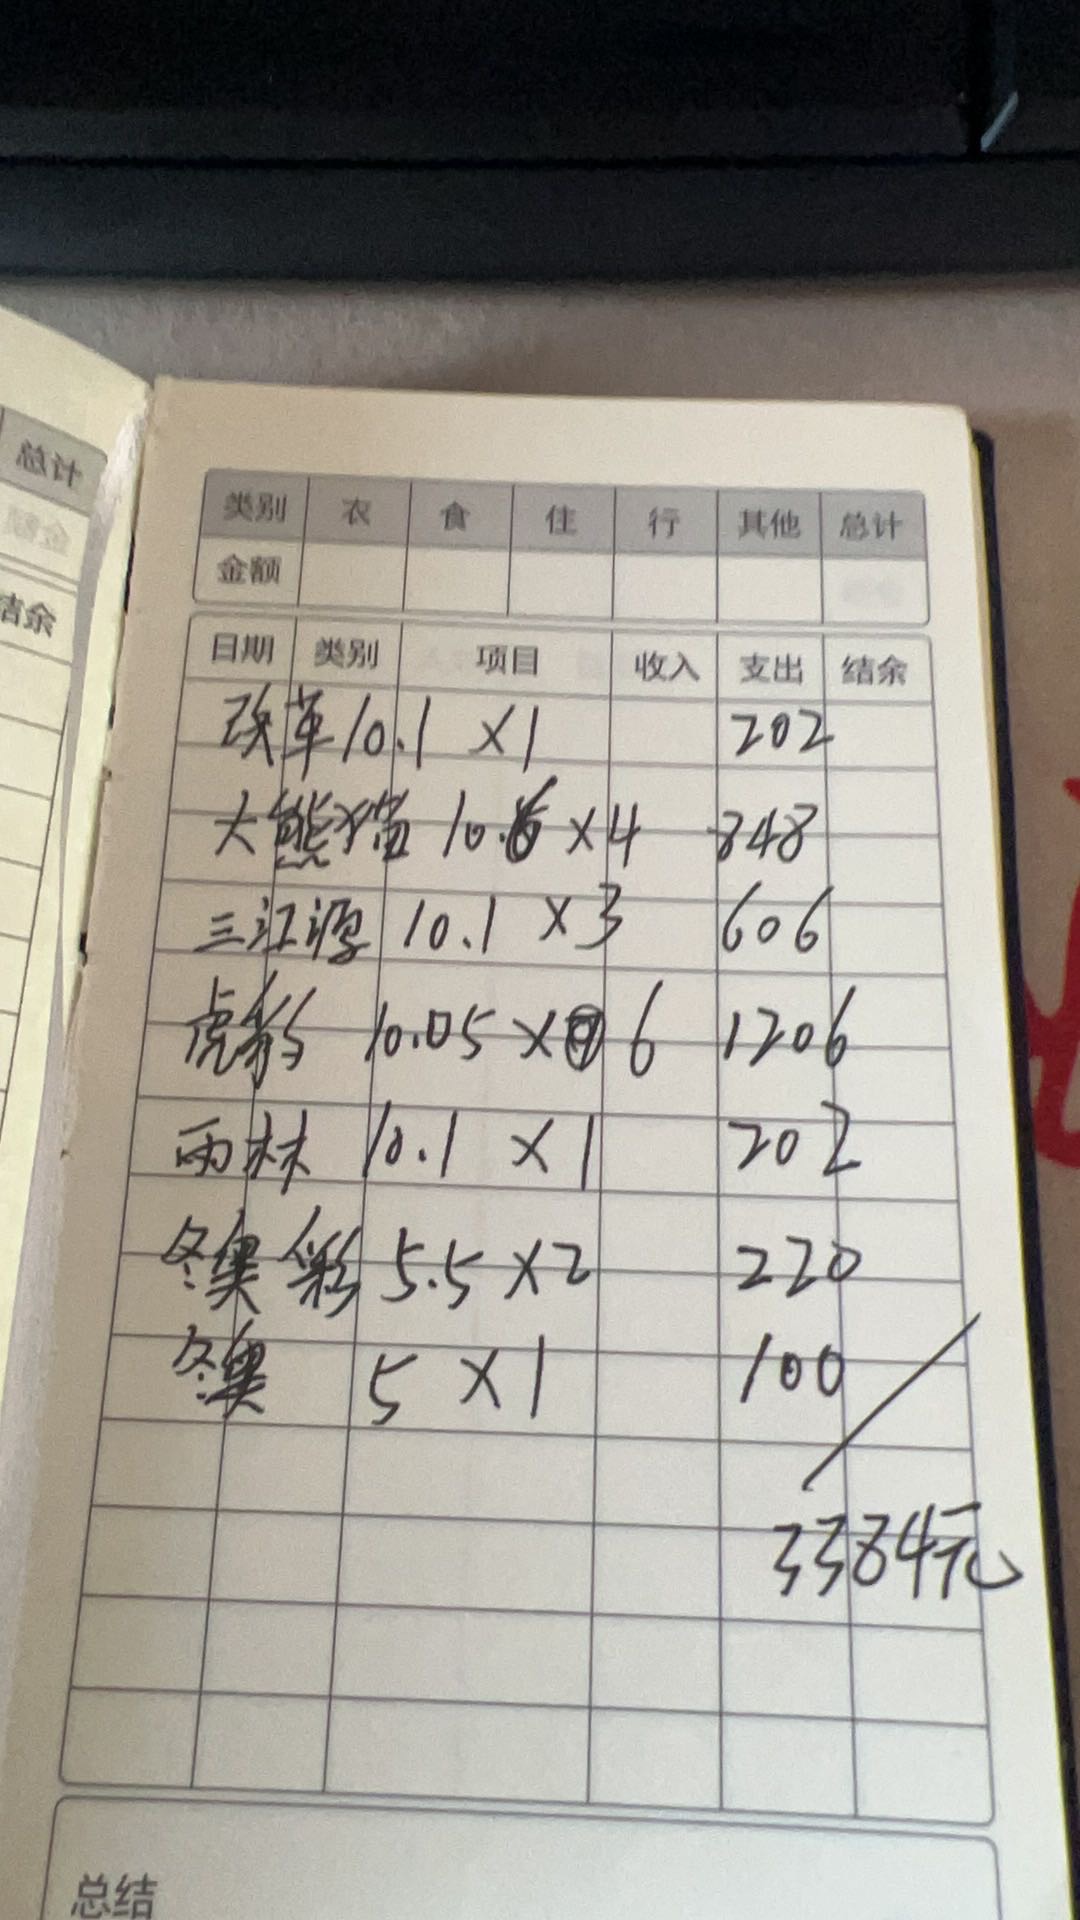 总计
结余
类别 衣 食 住 行 其他 总计
金额
日期 类别 项目 收入 支出 结余
改革 10.1 ×1 202
大熊猫 10.6 ×4 848
三江源 10.1 ×3 606
虎豹 10.05 × 6 1206
雨林 10.1 ×1 202
冬奥彩 5.5 ×2 220
冬奥 5 ×1 100
3384元
总结